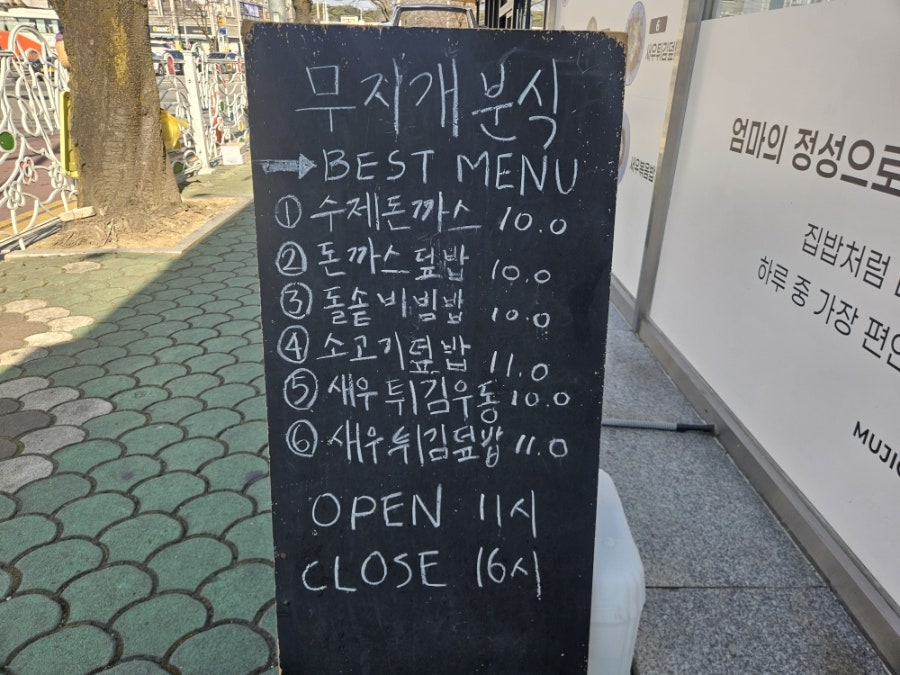 무지개분식
→ BEST MENU
① 수제돈까스 10.0
② 돈까스덮밥 10.0
③ 돌솥비빔밥 10.0
④ 소고기덮밥 11.0
⑤ 새우튀김우동 10.0
⑥ 새우튀김덮밥 11.0
OPEN 11시
CLOSE 16시
6
새우튀김덮밥
새우볶음밥
엄마의 정성으로
집밥처럼
하루 중 가장 편안
MUJIG